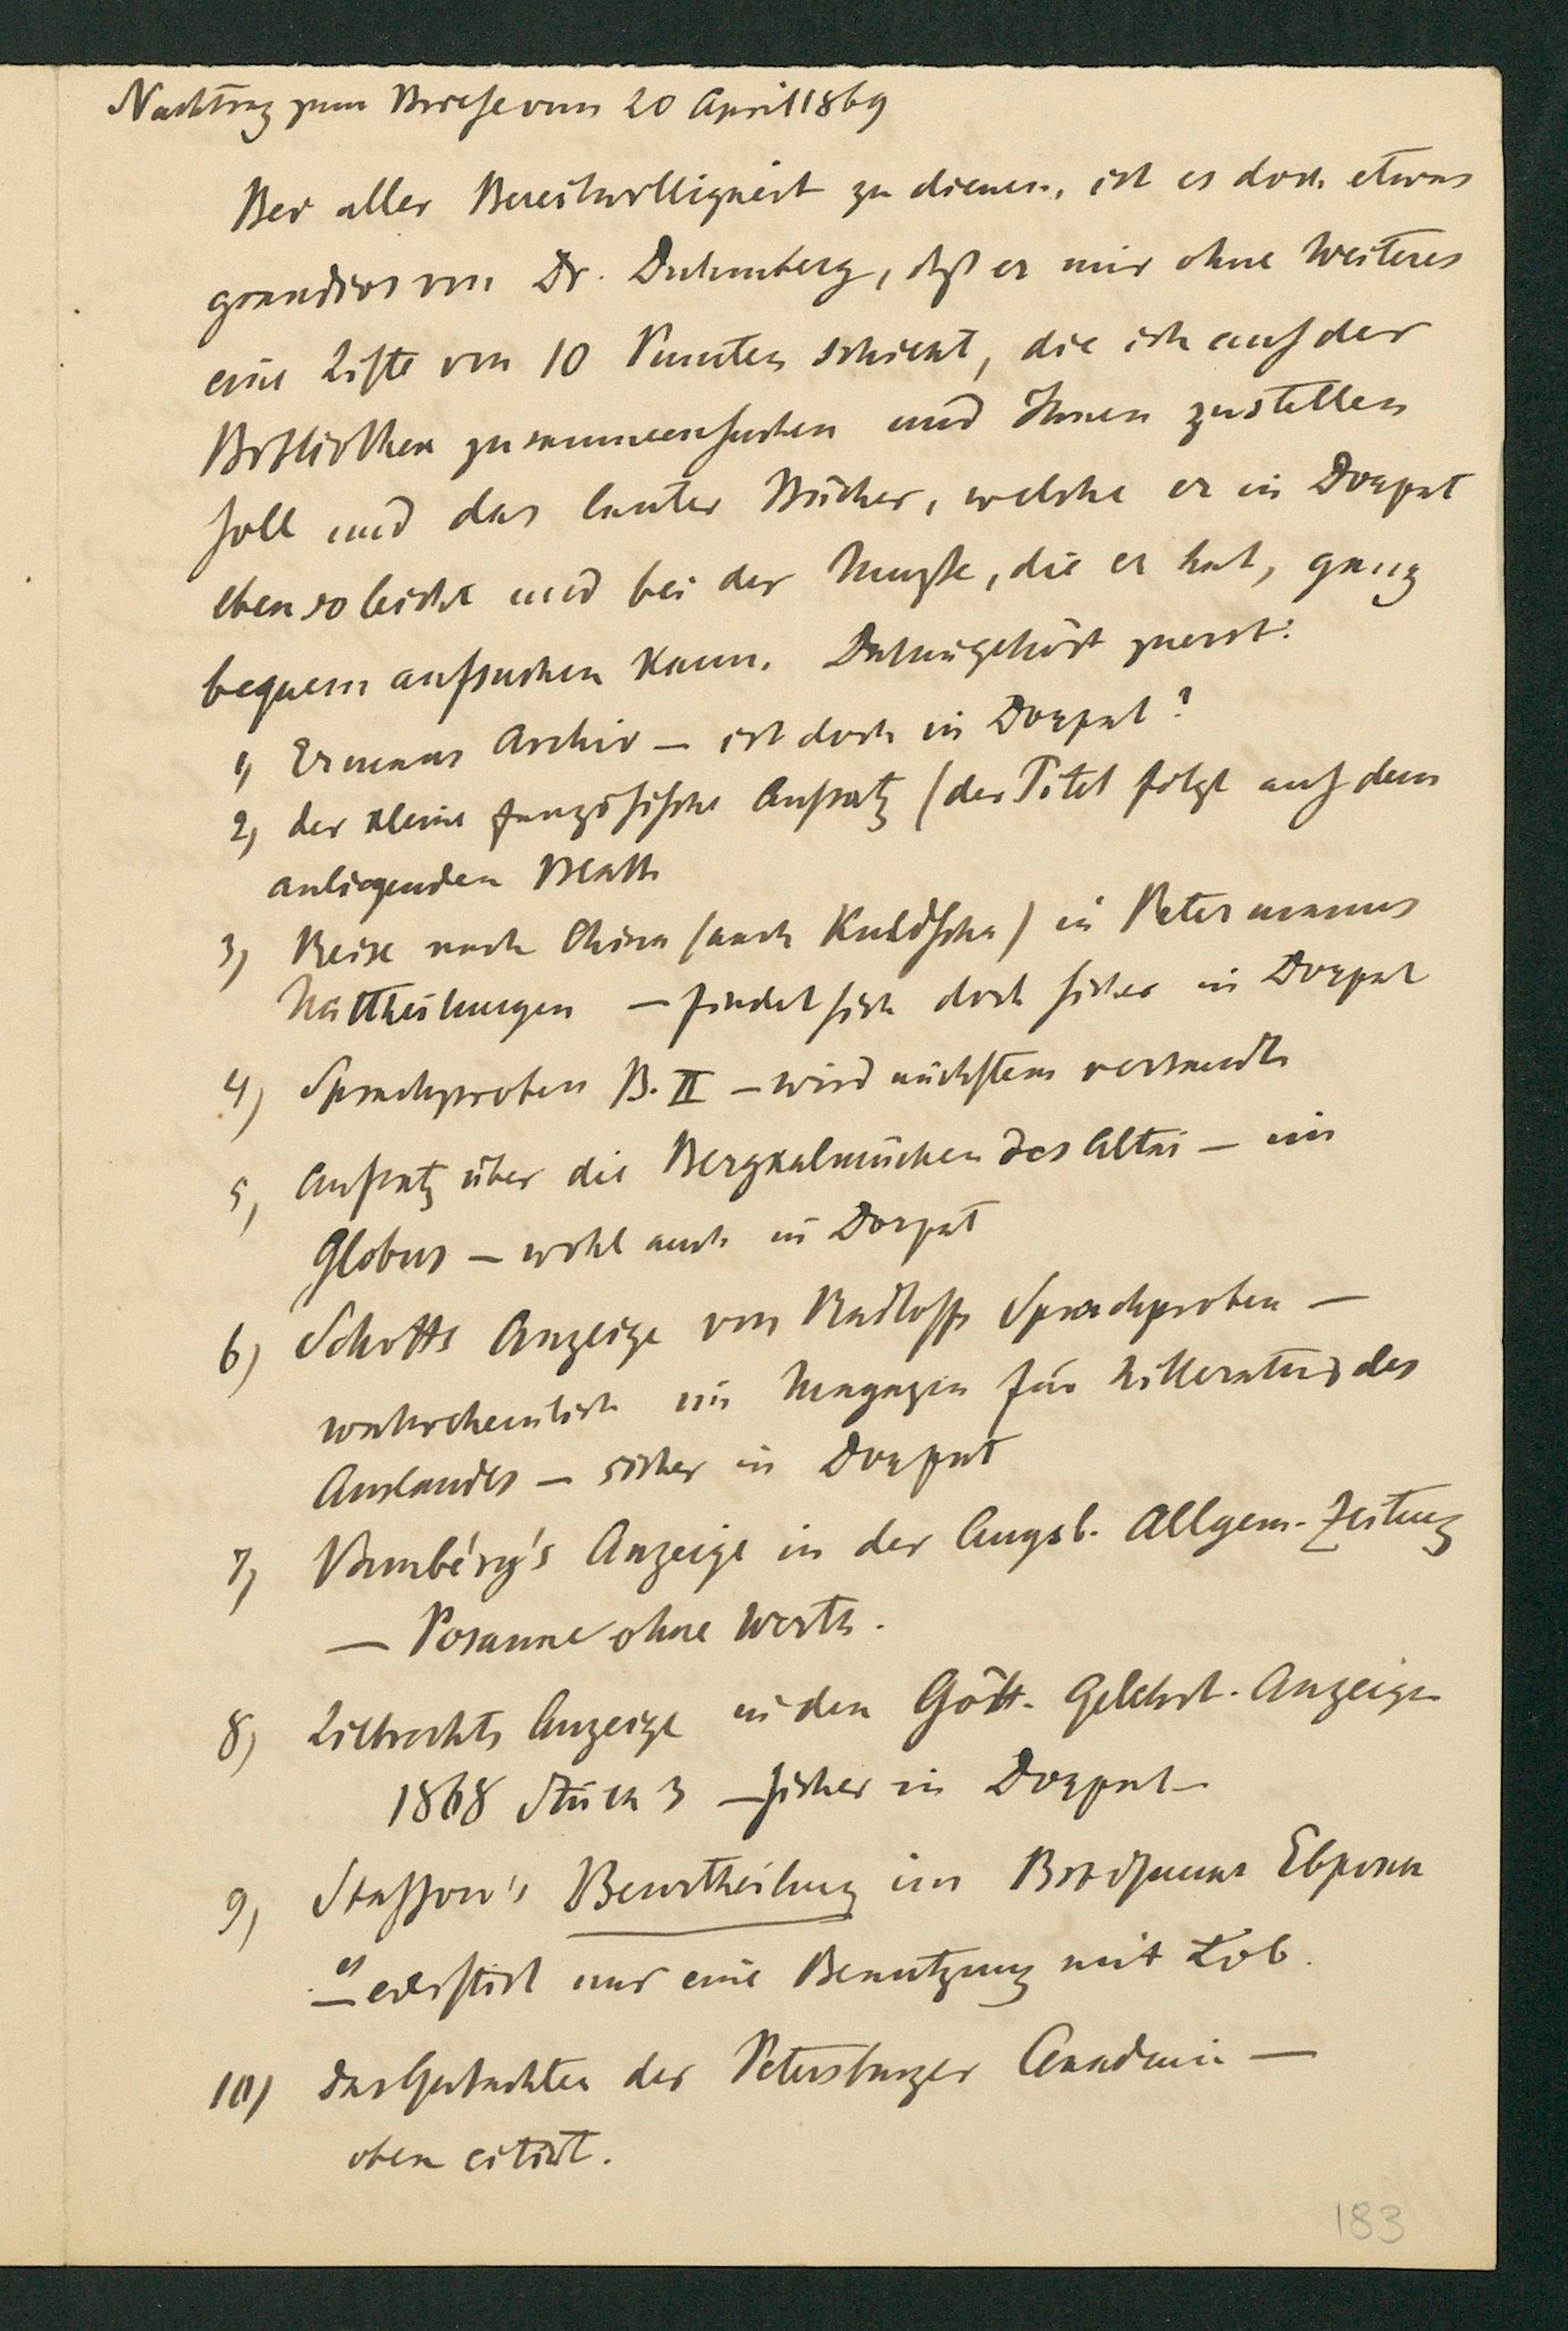 Nachtrag zum Briefe vom 20 April 1869
Bei aller Bereitwilligkeit zu dienen, ist es doch etwas
grandios von Dr. Duhmberg, daß er mir ohne Weiteres
eine Liste von 10 Punkten schickt, die ich auf der
Bibliothek zusammensuchen und Ihnen zustellen
soll und das lauter Bücher, welche er in Dorpat
ebenso leicht und bei der Muße, die er hat, ganz
bequem aufsuchen kann. Dahingehört zuerst:
1, Ermans Archiv – ist doch in Dorpat?
2, der kleine französische Aufsatz (der Titel folgt auf dem
anliegenden Blatt
3, Reise nach China (nach Kuldscha) in Petermanns
Mittheilungen – findet sich doch sicher in Dorpat
4) Sprachproben B. II – wird nächstens versandt
5, Aufsatz über die Bergkalmücken des Altai – im
Globus – wohl auch in Dorpat
6) Schotts Anzeige von Radloffs Sprachproben –
wahrscheinlich im Magazin für Litteratur des
Auslandes – sicher in Dorpat
7, Vambéry's Anzeige in der Augsb. Allgem. Zeitung
– Posaune ohne Werth.
8, Liebrechts Anzeige in den Gött. Gelehrt. Anzeigen
1868 Stück 3 – sicher in Dorpat
9, Stassow's Beurtheilung im
– es existirt nur eine Benutzung mit Lob.
10) das Gutachten der Petersburger Academie –
oben citirt.
183